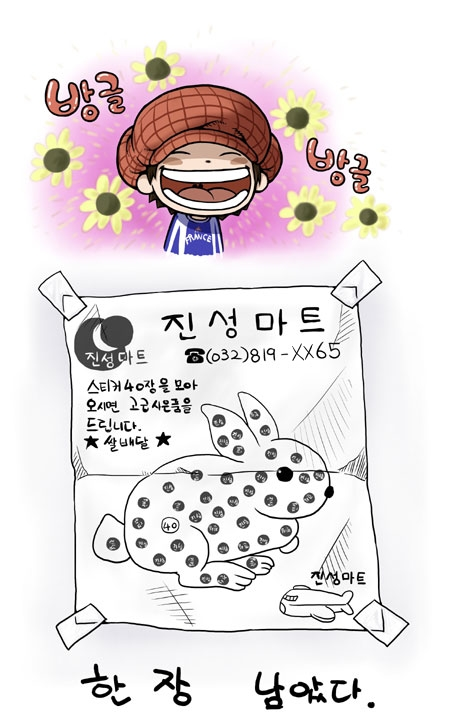 방글
방글
FRANCE
진성마트
진성마트
☎(032)819-XX65
스티커40장을 모아
오시면 고급 시은품을
드립니다.
★쌀배달★
40
진성마트
한 장 남았다.